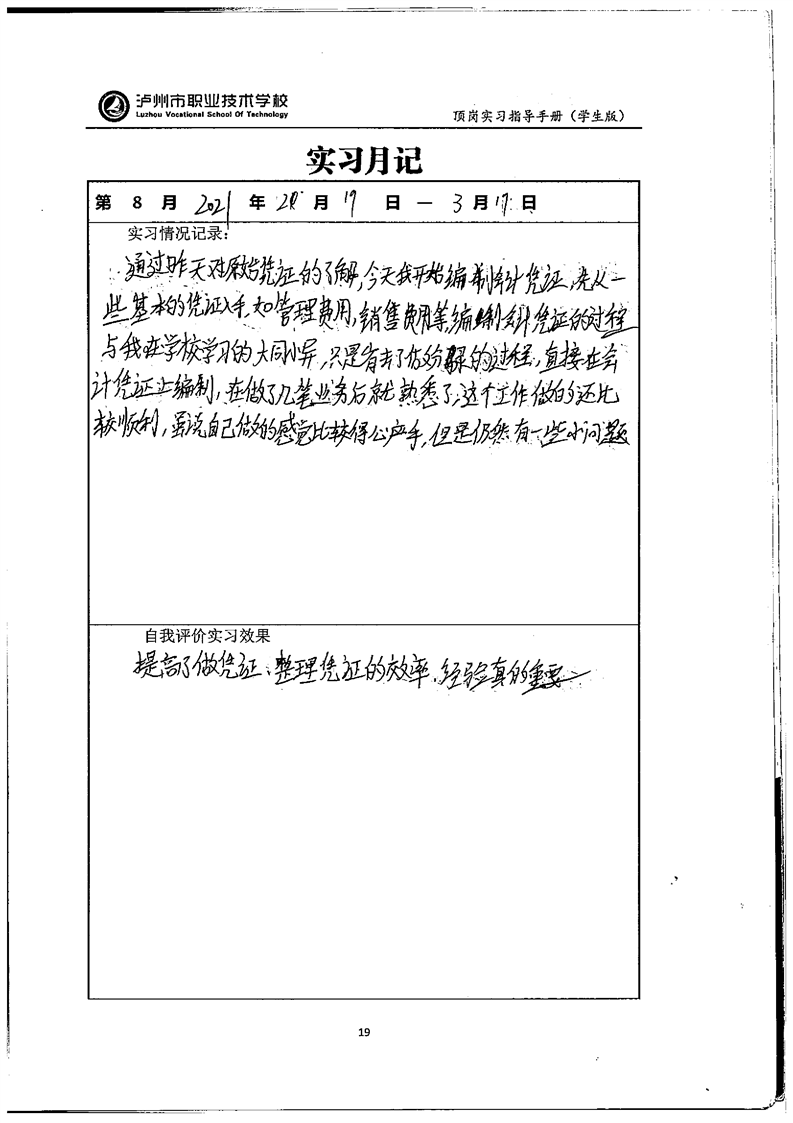 泸州市职业技术学校
Luzhou Vocational School Of Technology
顶岗实习指导手册（学生版）
实习月记
第 8 月 2021 年 2 月 17 日 — 3 月 17 日
实习情况记录：
通过昨天对原始凭证的了解，今天我开始编制会计凭证，先从一
些基本的凭证入手，如管理费用，销售费用等，编制会计凭证的过程
与我在学校学习的大同小异，只是省去了做分录的过程，直接在会
计凭证上编制，在做了几笔业务后就熟悉了，这个工作做的还比
较顺利，虽说自己做的感觉比较得心应手，但是仍然有一些小问题
自我评价实习效果
提高了做凭证、整理凭证的效率，经验真的重要
19